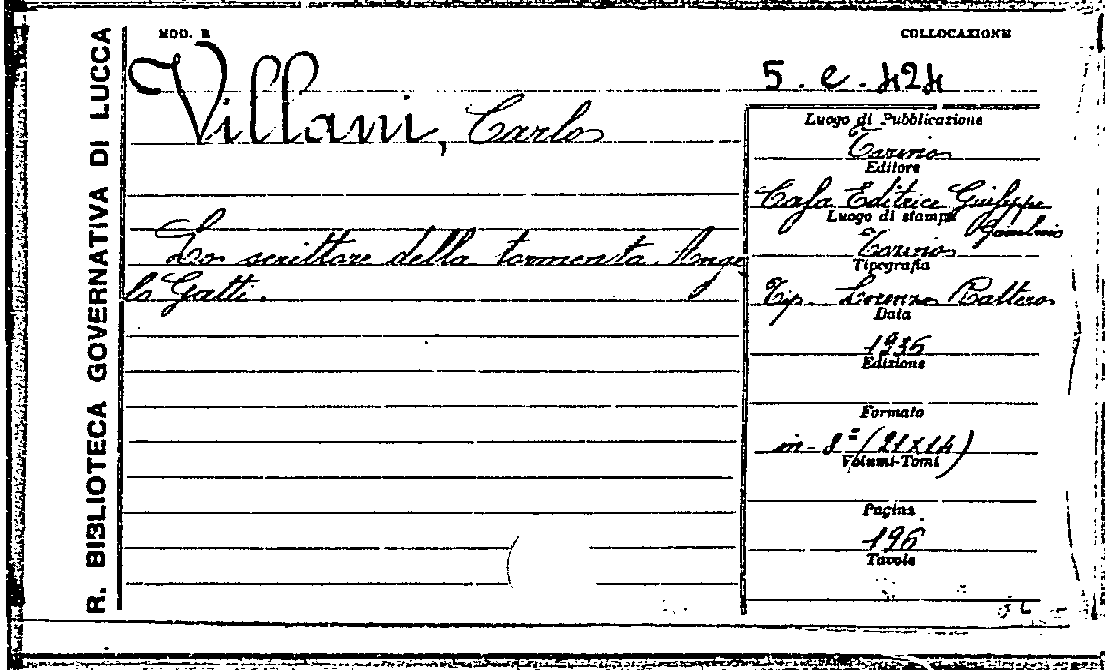 R. BIBLIOTECA GOVERNATIVA DI LUCCA
MOD. B
COLLOCAZIONE
5. e. 424
Villani, Carlo
Lo scrittore della tormenta Ange
lo Gatti.
Luogo di Pubblicazione
Torino
Editore
Casa Editrice Giuseppe
Gambino
Luogo di stampa
Torino
Tipografia
Tip. Lorenzo Rattero
Data
1936
Edizione
Formato
in-8° (21x14)
Volumi-Tomi
Pagine
196
Tavole